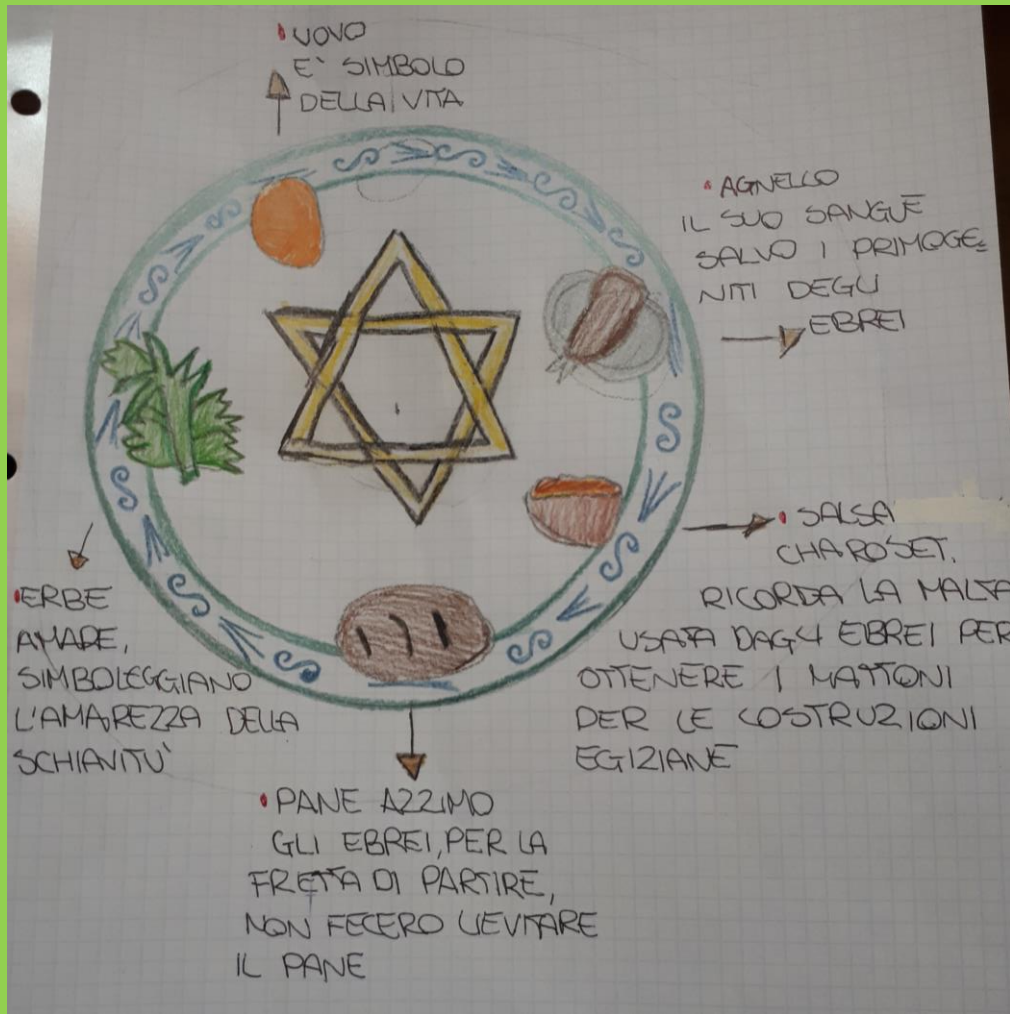 UOVO
E' SIMBOLO
DELLA VITA
AGNELLO
IL SUO SANGUE
SALVO I PRIMOGE=
NITI DEGLI
EBREI
SALSA
CHAROSET.
RICORDA LA MALTA
USATA DAGLI EBREI PER
OTTENERE I MATTONI
DER LE COSTRUZIONI
EGIZIANE
ERBE
AMARE,
SIMBOLEGGIANO
L'AMAREZZA DELLA
SCHIAVITU'
PANE AZZIMO
GLI EBREI, PER LA
FRETTA DI PARTIRE,
NON FECERO LIEVITARE
IL PANE